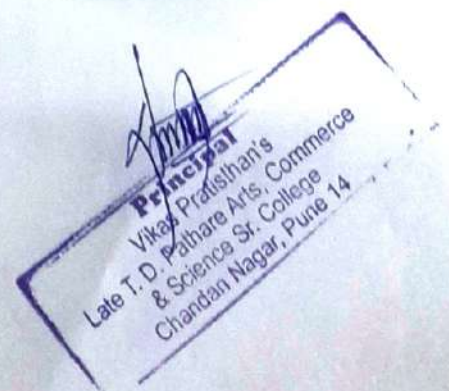 Principal
Vikas Pratisthan's
Late T. D. Pathare Arts, Commerce
& Science Sr. College
Chandan Nagar, Pune 14